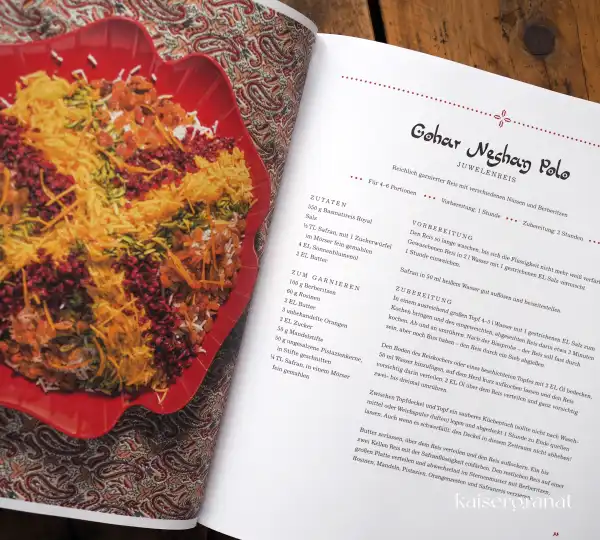 Gohar Neshan Polo
JUWELENREIS
Reichlich garnierter Reis mit verschiedenen Nüssen und Berberitzen
Für 4–6 Portionen ••• Vorbereitung: 1 Stunde ••• Zubereitung: 2 Stunden
ZUTATEN
g Basmatireis Royal
Salz
½ TL Safran, mit 1 Zuckerwürfel
im Mörser fein gemahlen
4 EL Sonnenblumenöl
2 EL Butter
ZUM GARNIEREN
100 g Berberitzen
60 g Rosinen
2 EL Butter
unbehandelte Orangen
2 EL Zucker
g Mandelstifte
50 g ungesalzene Pistazienkerne,
in Stifte geschnitten
¼ TL Safran, in einem Mörser
fein gemahlen
VORBEREITUNG
Den Reis so lange waschen, bis sich die Flüssigkeit nicht mehr weiß verfärbt.
Gewaschenen Reis in 2 l Wasser mit 1 gestrichenen EL Salz vermischt
1 Stunde einweichen.
Safran in 50 ml heißem Wasser gut auflösen und bereitstellen.
ZUBEREITUNG
In einem ausreichend großen Topf 4–5 l Wasser mit 1 gestrichenen EL Salz zum
Kochen bringen und den eingeweichten, abgeseihten Reis darin etwa 2 Minuten
kochen. Ab und an umrühren. Nach der Bissprobe – der Reis soll fast durch
sein, aber noch Biss haben – den Reis durch ein Sieb abgießen.
Den Boden des Reiskochers oder eines beschichteten Topfes mit 2 EL Öl bedecken,
50 ml Wasser hinzufügen, auf dem Herd kurz aufkochen lassen und den Reis
vorsichtig darin verteilen. 2 EL Öl über dem Reis verteilen und ganz vorsichtig
zwei- bis dreimal umrühren.
Zwischen Topfdeckel und Topf ein sauberes Küchentuch (sollte nicht nach Wasch-
mittel oder Weichspüler duften) legen und abgedeckt 1 Stunde zu Ende garen
lassen. Auch wenn es schwerfällt: den Deckel in diesem Zeitraum nicht abheben!
Butter zerlassen, über dem Reis verteilen und den Reis auflockern. Ein bis
zwei Kellen Reis mit der Safranflüssigkeit einfärben. Den restlichen Reis auf einer
großen Platte verteilen und abwechselnd im Sternenmuster mit Berberitzen,
Rosinen, Mandeln, Pistazien, Orangenzesten und Safranreis
kaisergranat